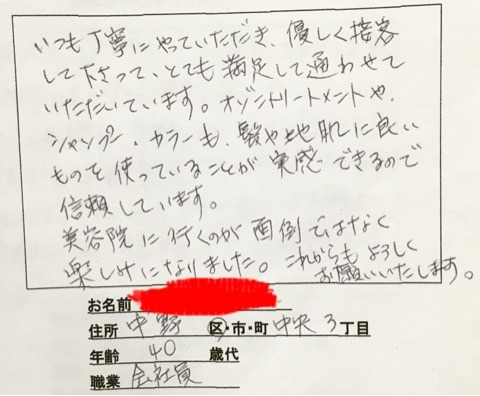 いつも丁寧にやっていただき、優しく接客
して下さって、とても満足して通わせて
いただいています。オゾントリートメントや、
シャンプー・カラーも、髪や地肌に良い
ものを使っていることが実感できるので
信頼しています。
美容院に行くのが面倒ではなく
楽しみになりました。これからもよろしく
お願いいたします。
お名前
住所 中野 区・市・町 中央3丁目
年齢 40 歳代
職業 会社員